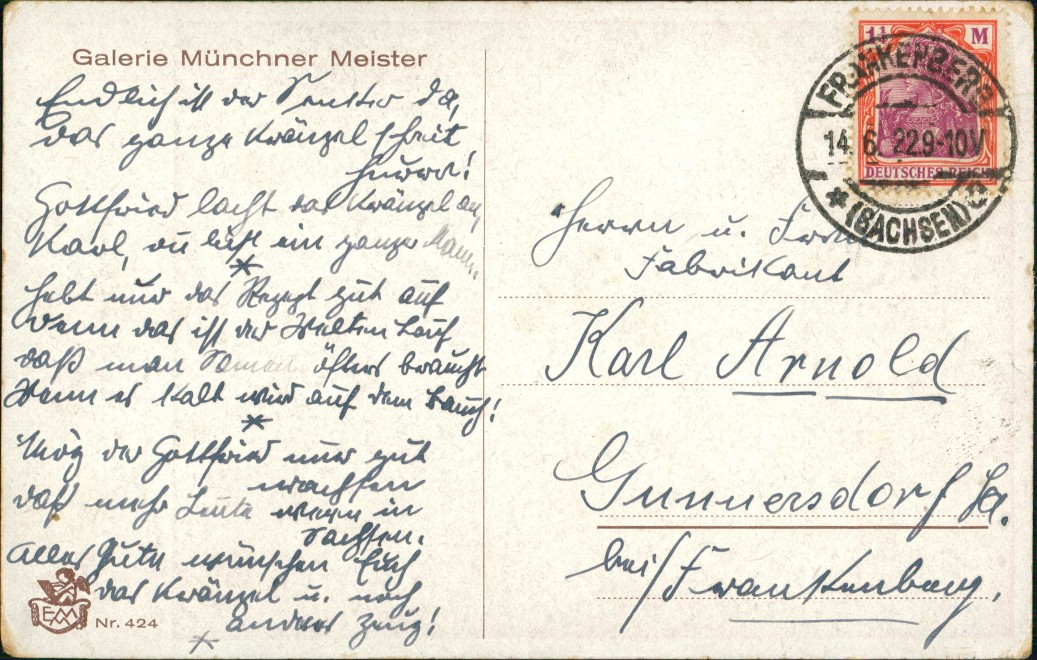 Galerie Münchner Meister
Endlich ist der da,
das ganze Kränzel schreit
hurra!
Gottfried lacht das Kränzel an,
Karl, du bist ein ganzer Mann.
*
Hebt nur das Rezept gut auf
denn das ist der Welten Lauf
daß man öfters braucht
Wenn es kalt wird auf dem Bauch!
*
Mög der Gottfried nur gut
wachsen
daß mehr Leute werden in
Sachsen.
Alles Gute wünschen Euch
das Kränzel u. noch
andres Zeug!
*
EMM
Nr. 424
1¼ M
DEUTSCHES REICH
FRANKENBERG
14. 6. 22 9-10V
* (SACHSEN) C
Herrn u. Frau
Fabrikant
Karl Arnold
Gunnersdorf Sa.
bei/Frankenberg.